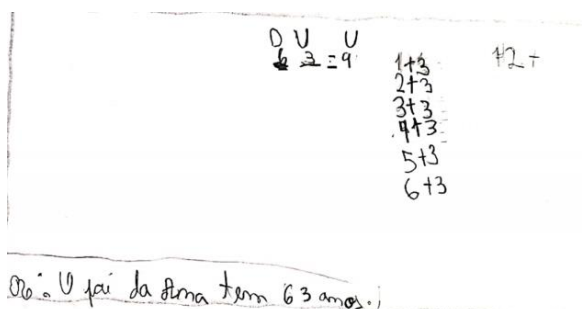 D U U
6 3 = 9
1+3
2+3
3+3
4+3
5+3
6+3
12+
R: O pai da Ana tem 63 anos.